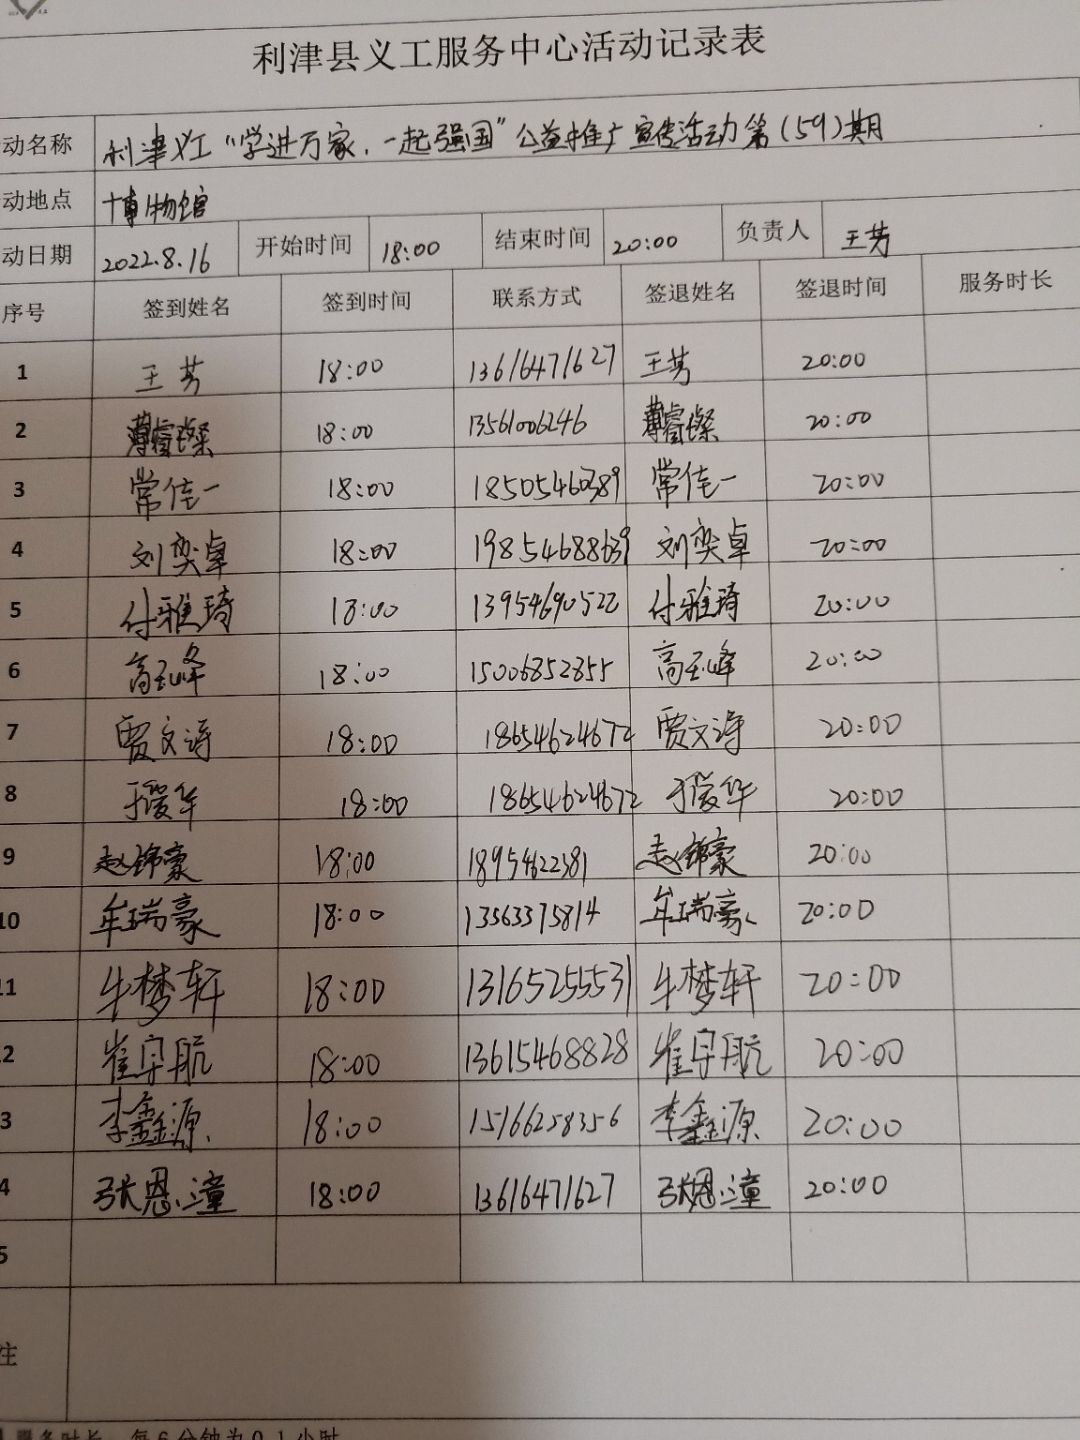 利津县义工服务中心活动记录表
动名称 利津义工“学进万家,一起强国”公益推广宣传活动第(59)期
动地点 博物馆
动日期 2022.8.16 开始时间 18:00 结束时间 20:00 负责人 王芳
序号 签到姓名 签到时间 联系方式 签退姓名 签退时间 服务时长
1 王芳 18:00 13616471627 王芳 20:00
2 薄睿璨 18:00 13561006246 薄睿璨 20:00
3 常佳一 18:00 18505460389 常佳一 20:00
4 刘奕卓 18:00 19854688639 刘奕卓 20:00
5 付雅琦 18:00 13954690522 付雅琦 20:00
6 高玉峰 18:00 15006852855 高玉峰 20:00
7 贾文涛 18:00 18654624672 贾文涛 20:00
8 于爱华 18:00 18654624672 于爱华 20:00
9 赵锦豪 18:00 18954622381 赵锦豪 20:00
10 牟瑞豪 18:00 13563375814 牟瑞豪 20:00
11 牛梦轩 18:00 13165255531 牛梦轩 20:00
2 崔宇航 18:00 13615468828 崔宇航 20:00
3 李鑫源 18:00 15166258356 李鑫源 20:00
4 张恩潼 18:00 13616471627 张恩潼 20:00
5
注
服务时长 每6分钟为0.1小时